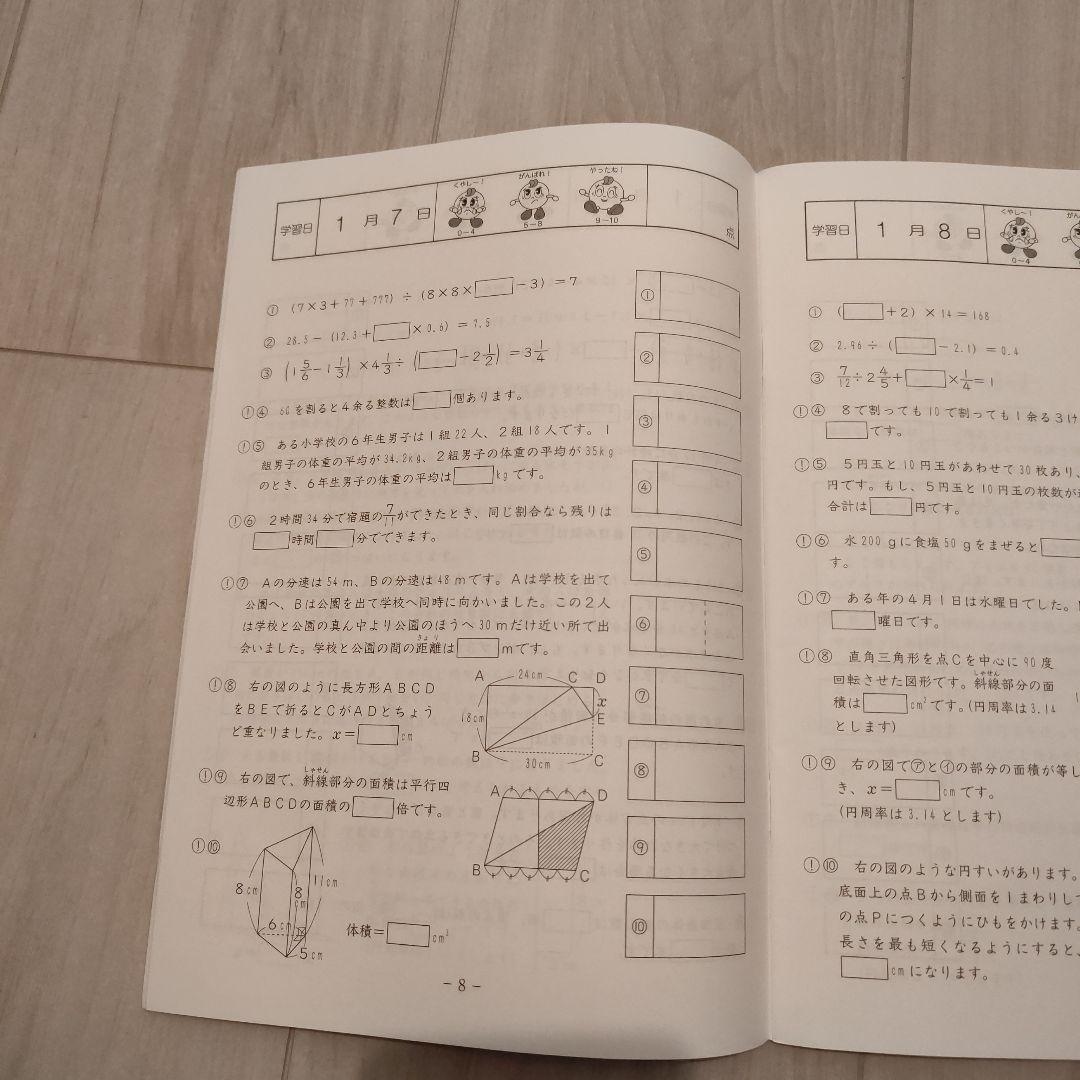 学習日 1月7日 くやし〜! 0−4 がんばれ! 5−8 やったね! 9−10 点
① (7×3+77+777)÷(8×8×□−3)=7
② 28.5−(12.3+□×0.6)=7.5
③ (1 5/6−1 1/3)×4 1/3÷(□−2 1/2)=3 1/4
!④ 60を割ると4余る整数は□個あります。
!⑤ ある小学校の6年生男子は1組22人、2組18人です。1
組男子の体重の平均が34.2kg、2組男子の体重の平均が35kg
のとき、6年生男子の体重の平均は□kgです。
!⑥ 2時間34分で宿題の7/11ができたとき、同じ割合なら残りは
□時間□分でできます。
!⑦ Aの分速は54m、Bの分速は48mです。Aは学校を出て
公園へ、Bは公園を出て学校へ同時に向かいました。この2人
は学校と公園の真ん中より公園のほうへ30mだけ近い所で出
きょり
会いました。学校と公園の間の距離は□mです。
!⑧ 右の図のように長方形ABCD
をBEで折るとCがADとちょう
ど重なりました。x=□cm
A 24cm C D
x
18cm E
B 30cm C
しゃせん
!⑨ 右の図で、斜線部分の面積は平行四
辺形ABCDの面積の□倍です。
A D
B C
!⑩
8cm 8cm 11cm
6cm
5cm
体積=□cm³
①
②
③
④
⑤
⑥
⑦
⑧
⑨
⑩
−8−
学習日 1月8日 くやし〜! 0−4 がん
① (□+2)×14=168
② 2.96÷(□−2.1)=0.4
③ 7/12÷2 4/5+□×1/4=1
!④ 8で割っても10で割っても1余る3け
□です。
!⑤ 5円玉と10円玉があわせて30枚あり、
円です。もし、5円玉と10円玉の枚数が
合計は□円です。
!⑥ 水200gに食塩50gをまぜると□
す。
!⑦ ある年の4月1日は水曜日でした。
□曜日です。
!⑧ 直角三角形を点Cを中心に90度
しゃせん
回転させた図形です。斜線部分の面
積は□cm²です。(円周率は3.14
とします)
!⑨ 右の図で㋐と㋑の部分の面積が等し
き、x=□cmです。
(円周率は3.14とします)
!⑩ 右の図のような円すいがあります。
底面上の点Bから側面を1まわりして
の点Pにつくようにひもをかけます。
長さを最も短くなるようにすると、
□cmになります。